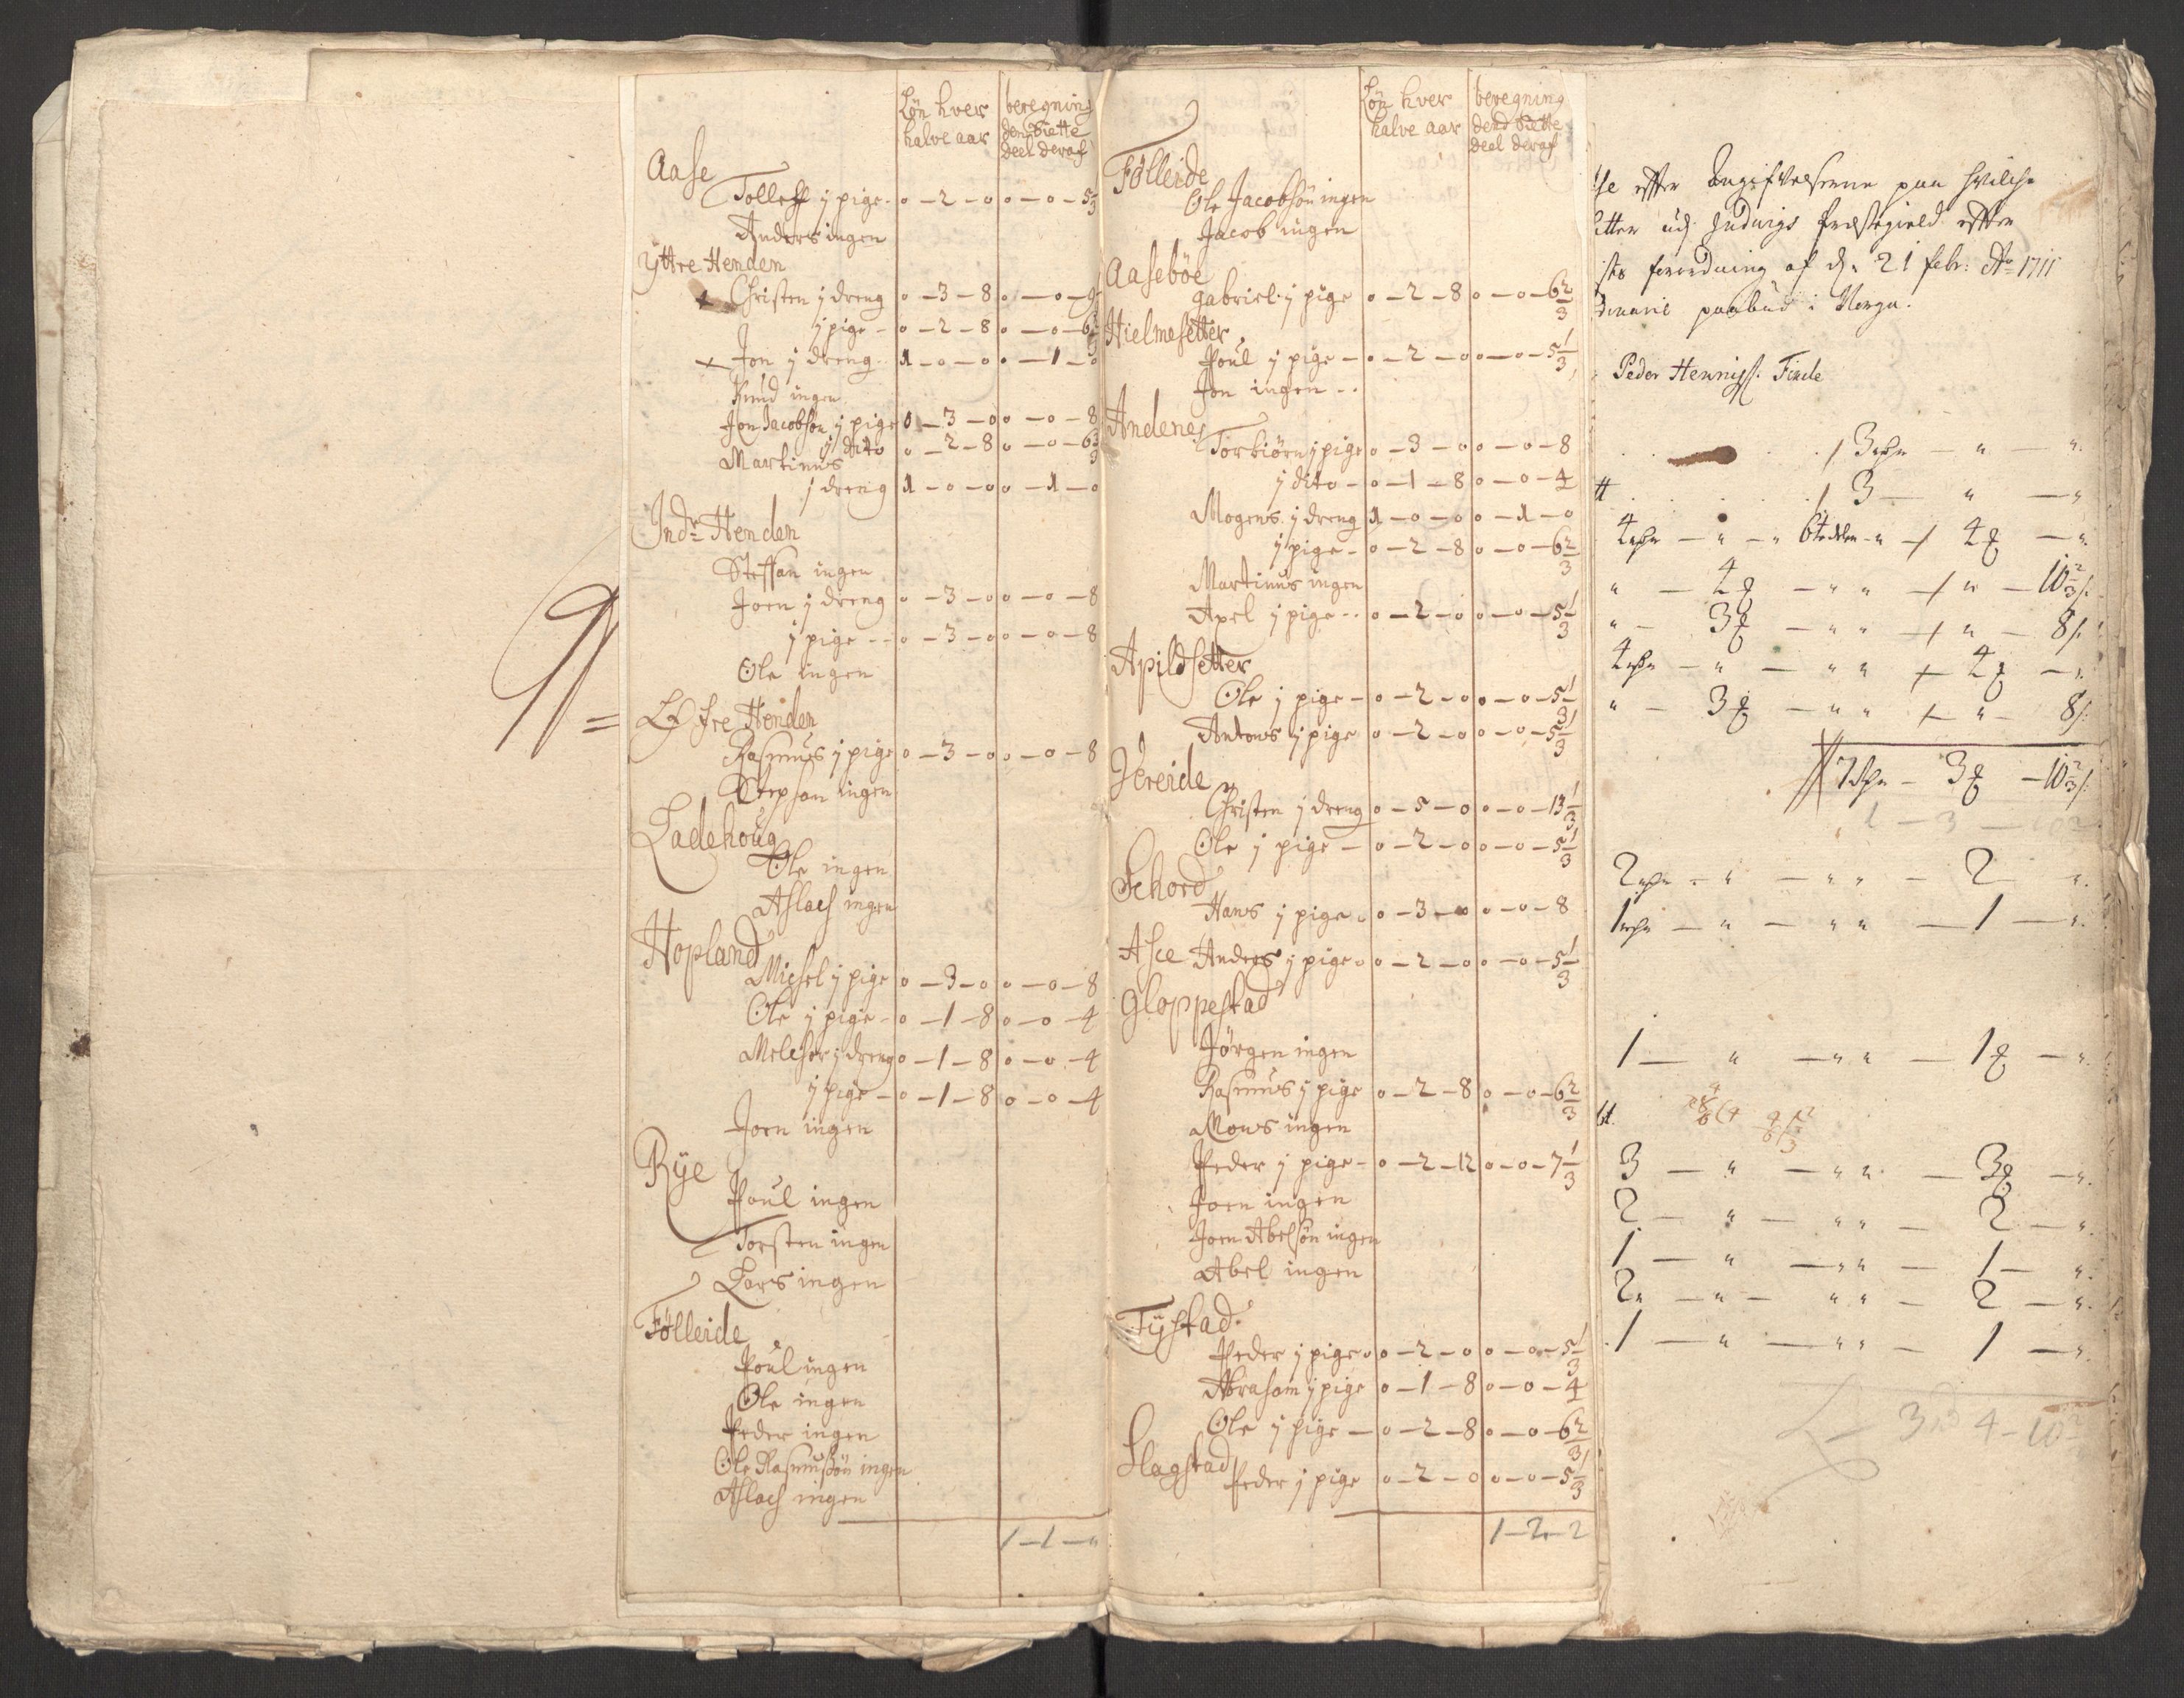 Løn hver beregning
halve aar den siette
deel deraf
Aase
Tolleff j pige - 0 - 2 - 0 0 - 0 - 5 1/3
Anders ingen
Yttre Henden
Christen j dreng 0 - 3 - 8 0 - 0 - 9
j pige - 0 - 2 - 8 0 - 0 - 6
Jon j dreng 1 - 0 - 0 0 - 1 - 0
Knud ingen
Jon Jacobsøn j pige 0 - 3 - 0 0 - 0 - 8
j dito 0 - 2 - 8 0 - 0 - 6 2/3
Martinus
j dreng 1 - 0 - 0 0 - 1 - 0
Indr Henden
Steffan ingen
Joen j dreng 0 - 3 - 0 0 - 0 - 8
j pige - - 0 - 3 - 0 0 - 0 - 8
Ole ingen
Øfre Henden
Rasmus j pige 0 - 3 - 0 0 - 0 - 8
ingen
Ladehoug
Ole ingen
Aslach ingen
Hopland
Michel j pige 0 - 3 - 0 0 - 0 - 8
Ole j pige - 0 - 1 - 8 0 - 0 - 4
Melchior j dreng 0 - 1 - 8 0 - 0 - 4
j pige - 0 - 1 - 8 0 - 0 - 4
Joen ingen
Rye
Poul ingen
Torsten ingen
Lars ingen
Følleide
Poul ingen
Ole ingen
Peder ingen
Ole Rasmussøn ingen
Aslach ingen
1 - 1 - "
Løn hver beregning
halve aar dend siette
deel deraf
Følleide
Ole Jacobsøn ingen
Jacob ingen
Aasebøe
Gabriel j pige 0 - 2 - 8 0 - 0 - 6 2/3
Hielmesetter
Poul j pige - 0 - 2 - 0 0 - 0 - 5 1/3
Jon ingen - -
Andenes
Torbiørn j pige 0 - 3 - 0 0 - 0 - 8
j dito - 0 - 1 - 8 0 - 0 - 4
Mogens j dreng 1 - 0 - 0 0 - 1 - 0
j pige - 0 - 2 - 8 0 - 0 - 6 2/3
Martinus ingen
Axel j pige - - 0 - 2 - 0 0 - 0 - 5 1/3
Apildsetter
Ole j pige - 0 - 2 - 0 0 - 0 - 5 1/3
Antonis j pige 0 - 2 - 0 0 - 0 - 5 1/3
Vereide
Christen j dreng 0 - 5 - 0 0 - 0 - 13 1/3
Ole j pige - 0 - 2 - 0 0 - 0 - 5 1/3
Hans j pige 0 - 3 - 0 0 - 0 - 8
Asce Anders j pige 0 - 2 - 0 0 - 0 - 5 1/3
Gloppestad
Jørgen ingen
Rasmus j pige 0 - 2 - 8 0 - 0 - 6 2/3
Mons ingen
Peder j pige - 0 - 2 - 12 0 - 0 - 7 1/3
Joen ingen
Joen Abelsøn ingen
Abel ingen
Tystad
Peder j pige 0 - 2 - 0 0 - 0 - 5 1/3
Abraham j pige 0 - 1 - 8 0 - 0 - 4
Ole j pige - 0 - 2 - 8 0 - 0 - 6 2/3
Flagstad
Peder j pige 0 - 2 - 0 0 - 0 - 5 1/3
1 - 2 - 2
efter Angifvelserne paa hvilche
efter
forordning af d: 21 febr: Ao 1711
paabud i Norge.
Peder Hennigs: Finde
3 - " - "
3 - " - "
4 - " - " - 4 - "
" - 4 - " " - " - 10 2/3
" - 3 - " " - " - 8
4 - " - " " - 4 - "
" - 3 - " " - " - 8
7 - 3 - 10 2/3
2 - " - " " - 2 - "
1 - " - " " - 1 - "
1 - " - " " - 1 - "
3 - " - " " - 3 - "
2 - " - " " - 2 - "
1 - " - " " - 1 - "
2 - " - " " - 2 - "
1 - " - " " - 1 - "